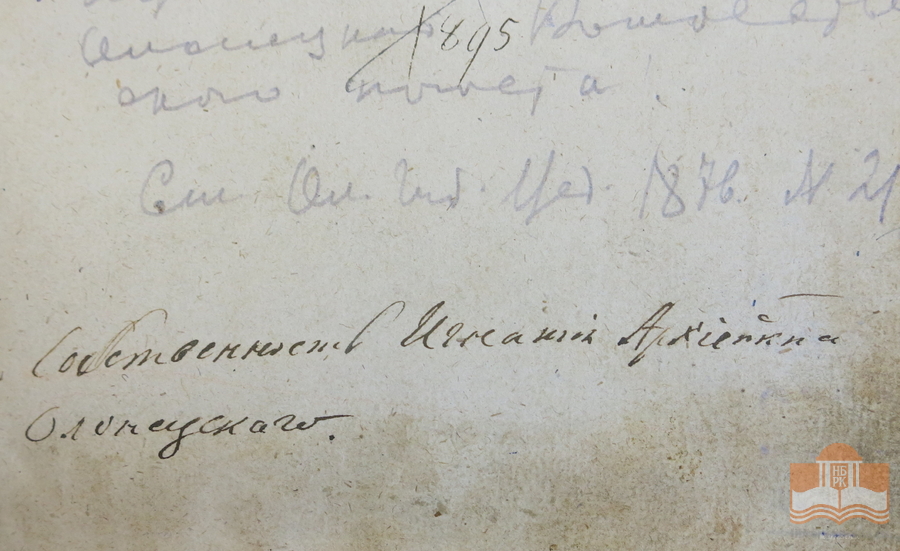 Олонецкаго
1895
скаго погоста.
См. Ол. Губ. Вед. 1876. N 21
Собственность Игнатія Архіепкпа
Олонецкаго.
НБ
РК